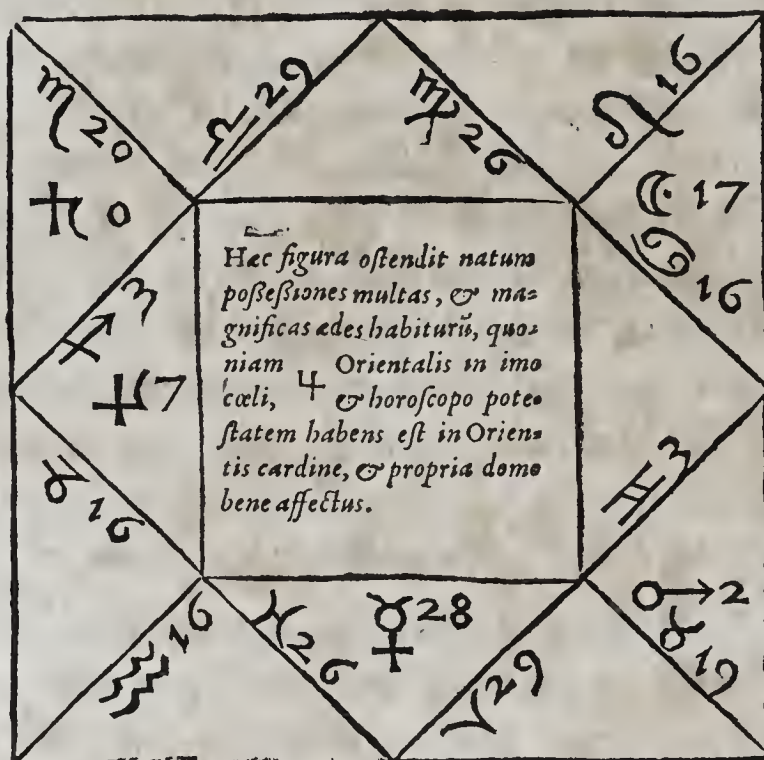 ♏ 20
♄ 0
♎ 29
♍ 26
♌ 16
☾ 17
♋ 16
♐ 3
♃ 7
Hæc figura oſtendit natum
poſſeſsiones multas, & ma-
gnificas ædes habiturũ, quo-
niam ♃ Orientalis in imo
cœli, & horoſcopo pote-
ſtatem habens eſt in Orien-
tis cardine, & propria domo
bene affectus.
♑ 16
♊ 3
♒ 16
♓ 26
☿ 28
♈ 29
♂ 2
♉ 19